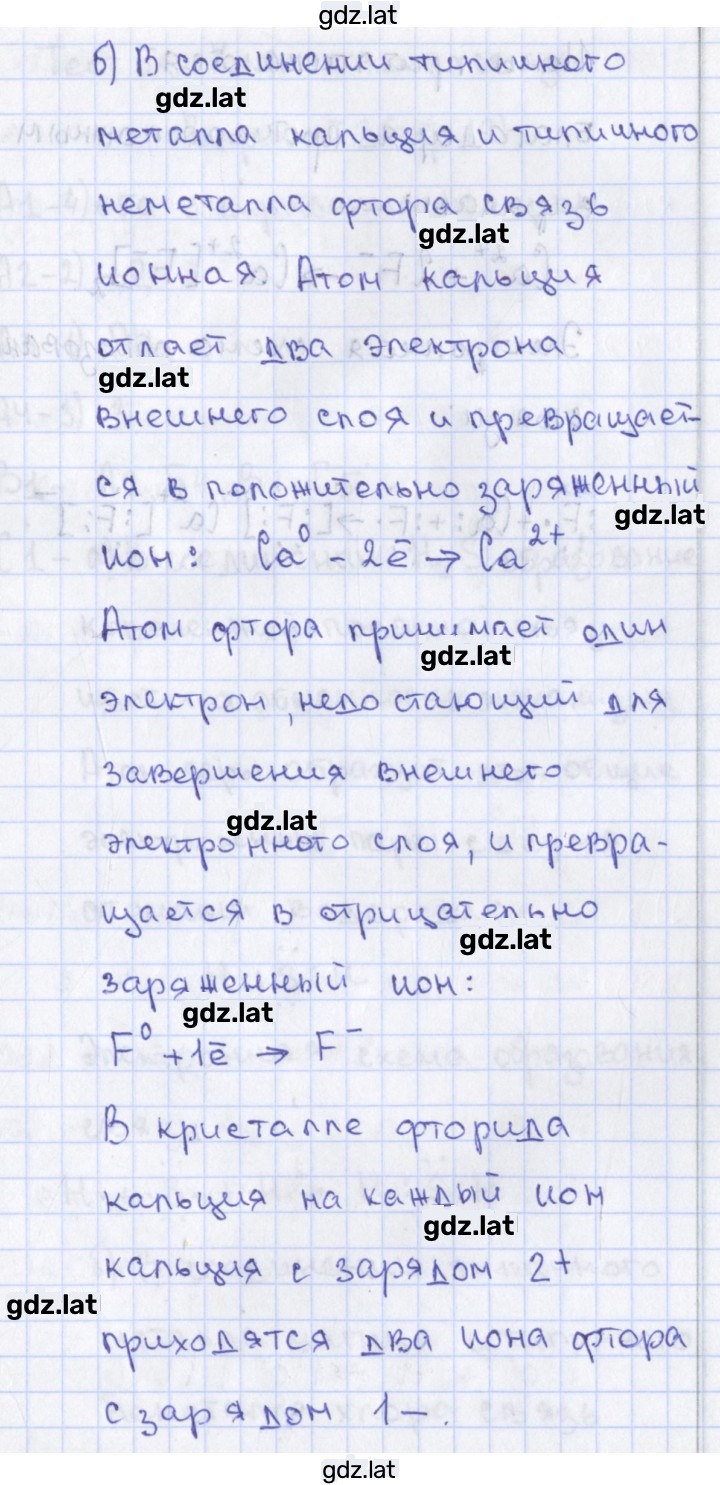 gdz.lat
б) В соединении типичного
gdz.lat
металла кальция и типичного
неметалла фтора связь
gdz.lat
ионная. Атом кальция
отдаёт два электрона
gdz.lat
внешнего слоя и превращает-
ся в положительно заряженный
gdz.lat
ион: Ca⁰ - 2ē → Ca²⁺
Атом фтора принимает один
gdz.lat
электрон, недостающий для
завершения внешнего
gdz.lat
электронного слоя, и превра-
щается в отрицательно
gdz.lat
заряженный ион:
gdz.lat
F⁰ + 1ē → F⁻
В кристалле фторида
кальция на каждый ион
gdz.lat
кальция с зарядом 2+
gdz.lat
приходятся два иона фтора
с зарядом 1-.
gdz.lat